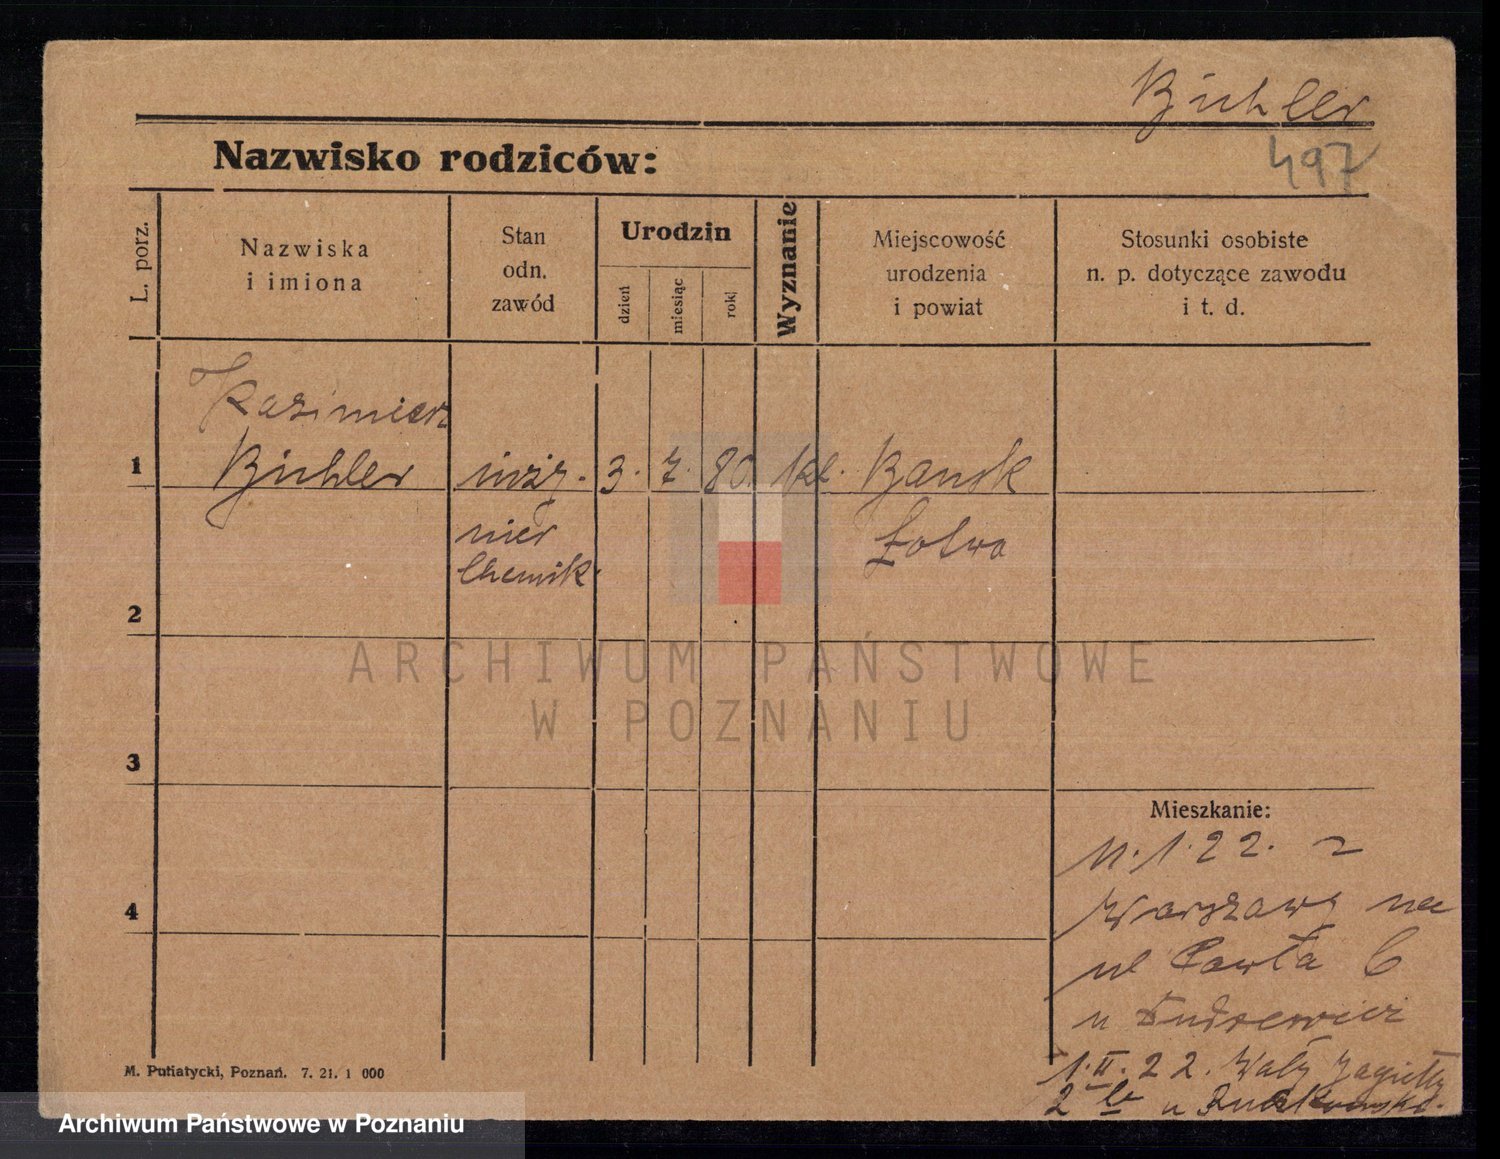 Bichler
497
Nazwisko rodziców:
L. porz.
Nazwiska
i imiona
Stan
odn.
zawód
Urodzin
dzień
miesiąc
rok
Wyznanie
Miejscowość
urodzenia
i powiat
Stosunki osobiste
n. p. dotyczące zawodu
i t. d.
Kazimierz
1 Bichler inży- 3. 7. 80. kat. Bausk
nier Łotwa
chemik
2
ARCHIWUM PAŃSTWOWE
W POZNANIU
3
Mieszkanie:
11.1.22. z
Warszawy na
4
ul Pawła 6
u
1.II.22. Wały Jagiełły
2 u
M. Putiatycki, Poznań. 7. 21. 1 000
Archiwum Państwowe w Poznaniu